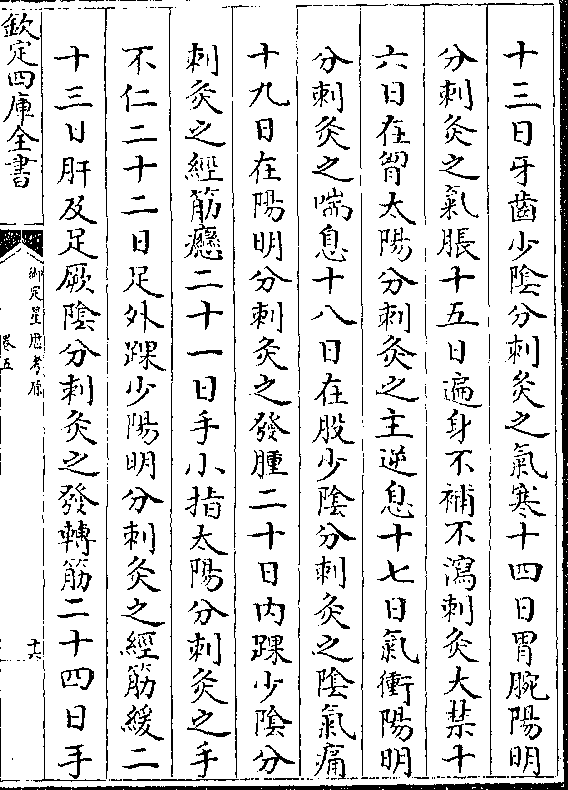 十三日牙齒少陰分刺灸之氣寒十四日胃腕陽明
分刺灸之氣脹十五日遍身不補不瀉刺灸大禁十
六日在胷太陽分刺灸之主逆息十七日氣衝陽明
分刺灸之喘息十八日在股少陰分刺灸之隂氣痛
十九日在陽明分刺灸之發腫二十日内踝少隂分
刺灸之經筋癮二十一日手小指太陽分刺灸之手
不仁二十二日足外踝少陽明分刺灸之經筋緩二
十三日肝及足厥隂分刺灸之發轉筋二十四日手
欽定四庫全書
御定星厯考原
卷五
十六